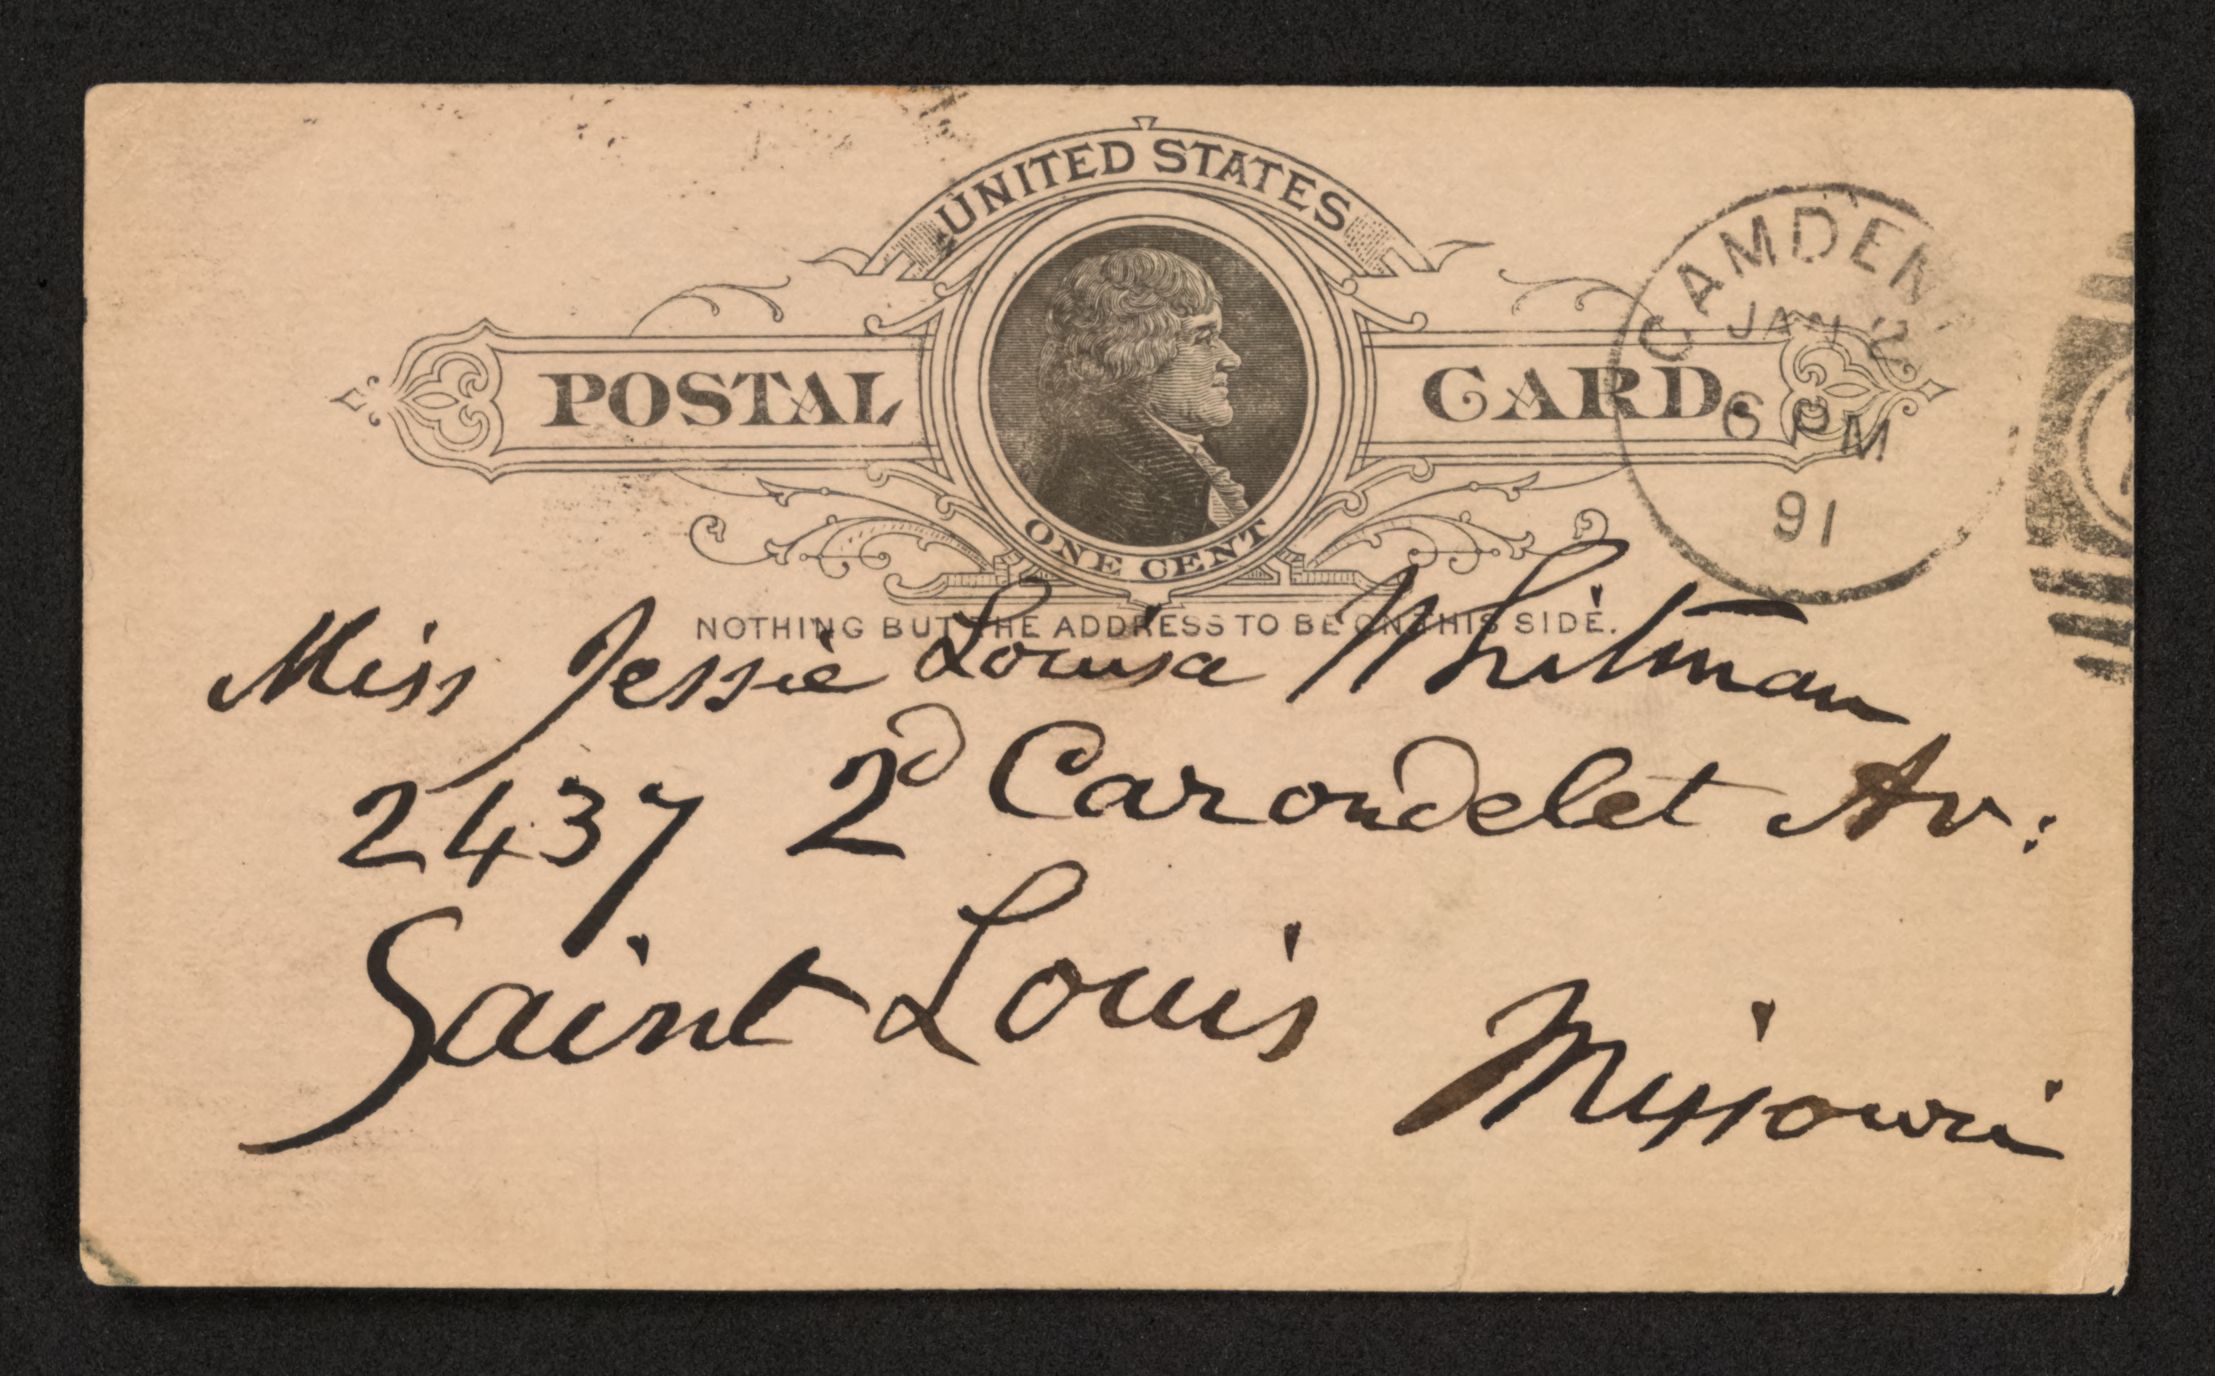 UNITED STATES
POSTAL CARD.
ONE CENT
NOTHING BUT THE ADDRESS TO BE ON THIS SIDE.
CAMDEN
JAN 2
6 PM
91
Miss Jessie Louisa Whitman
2437 2d Carondelet Av:
Saint Louis
Missouri